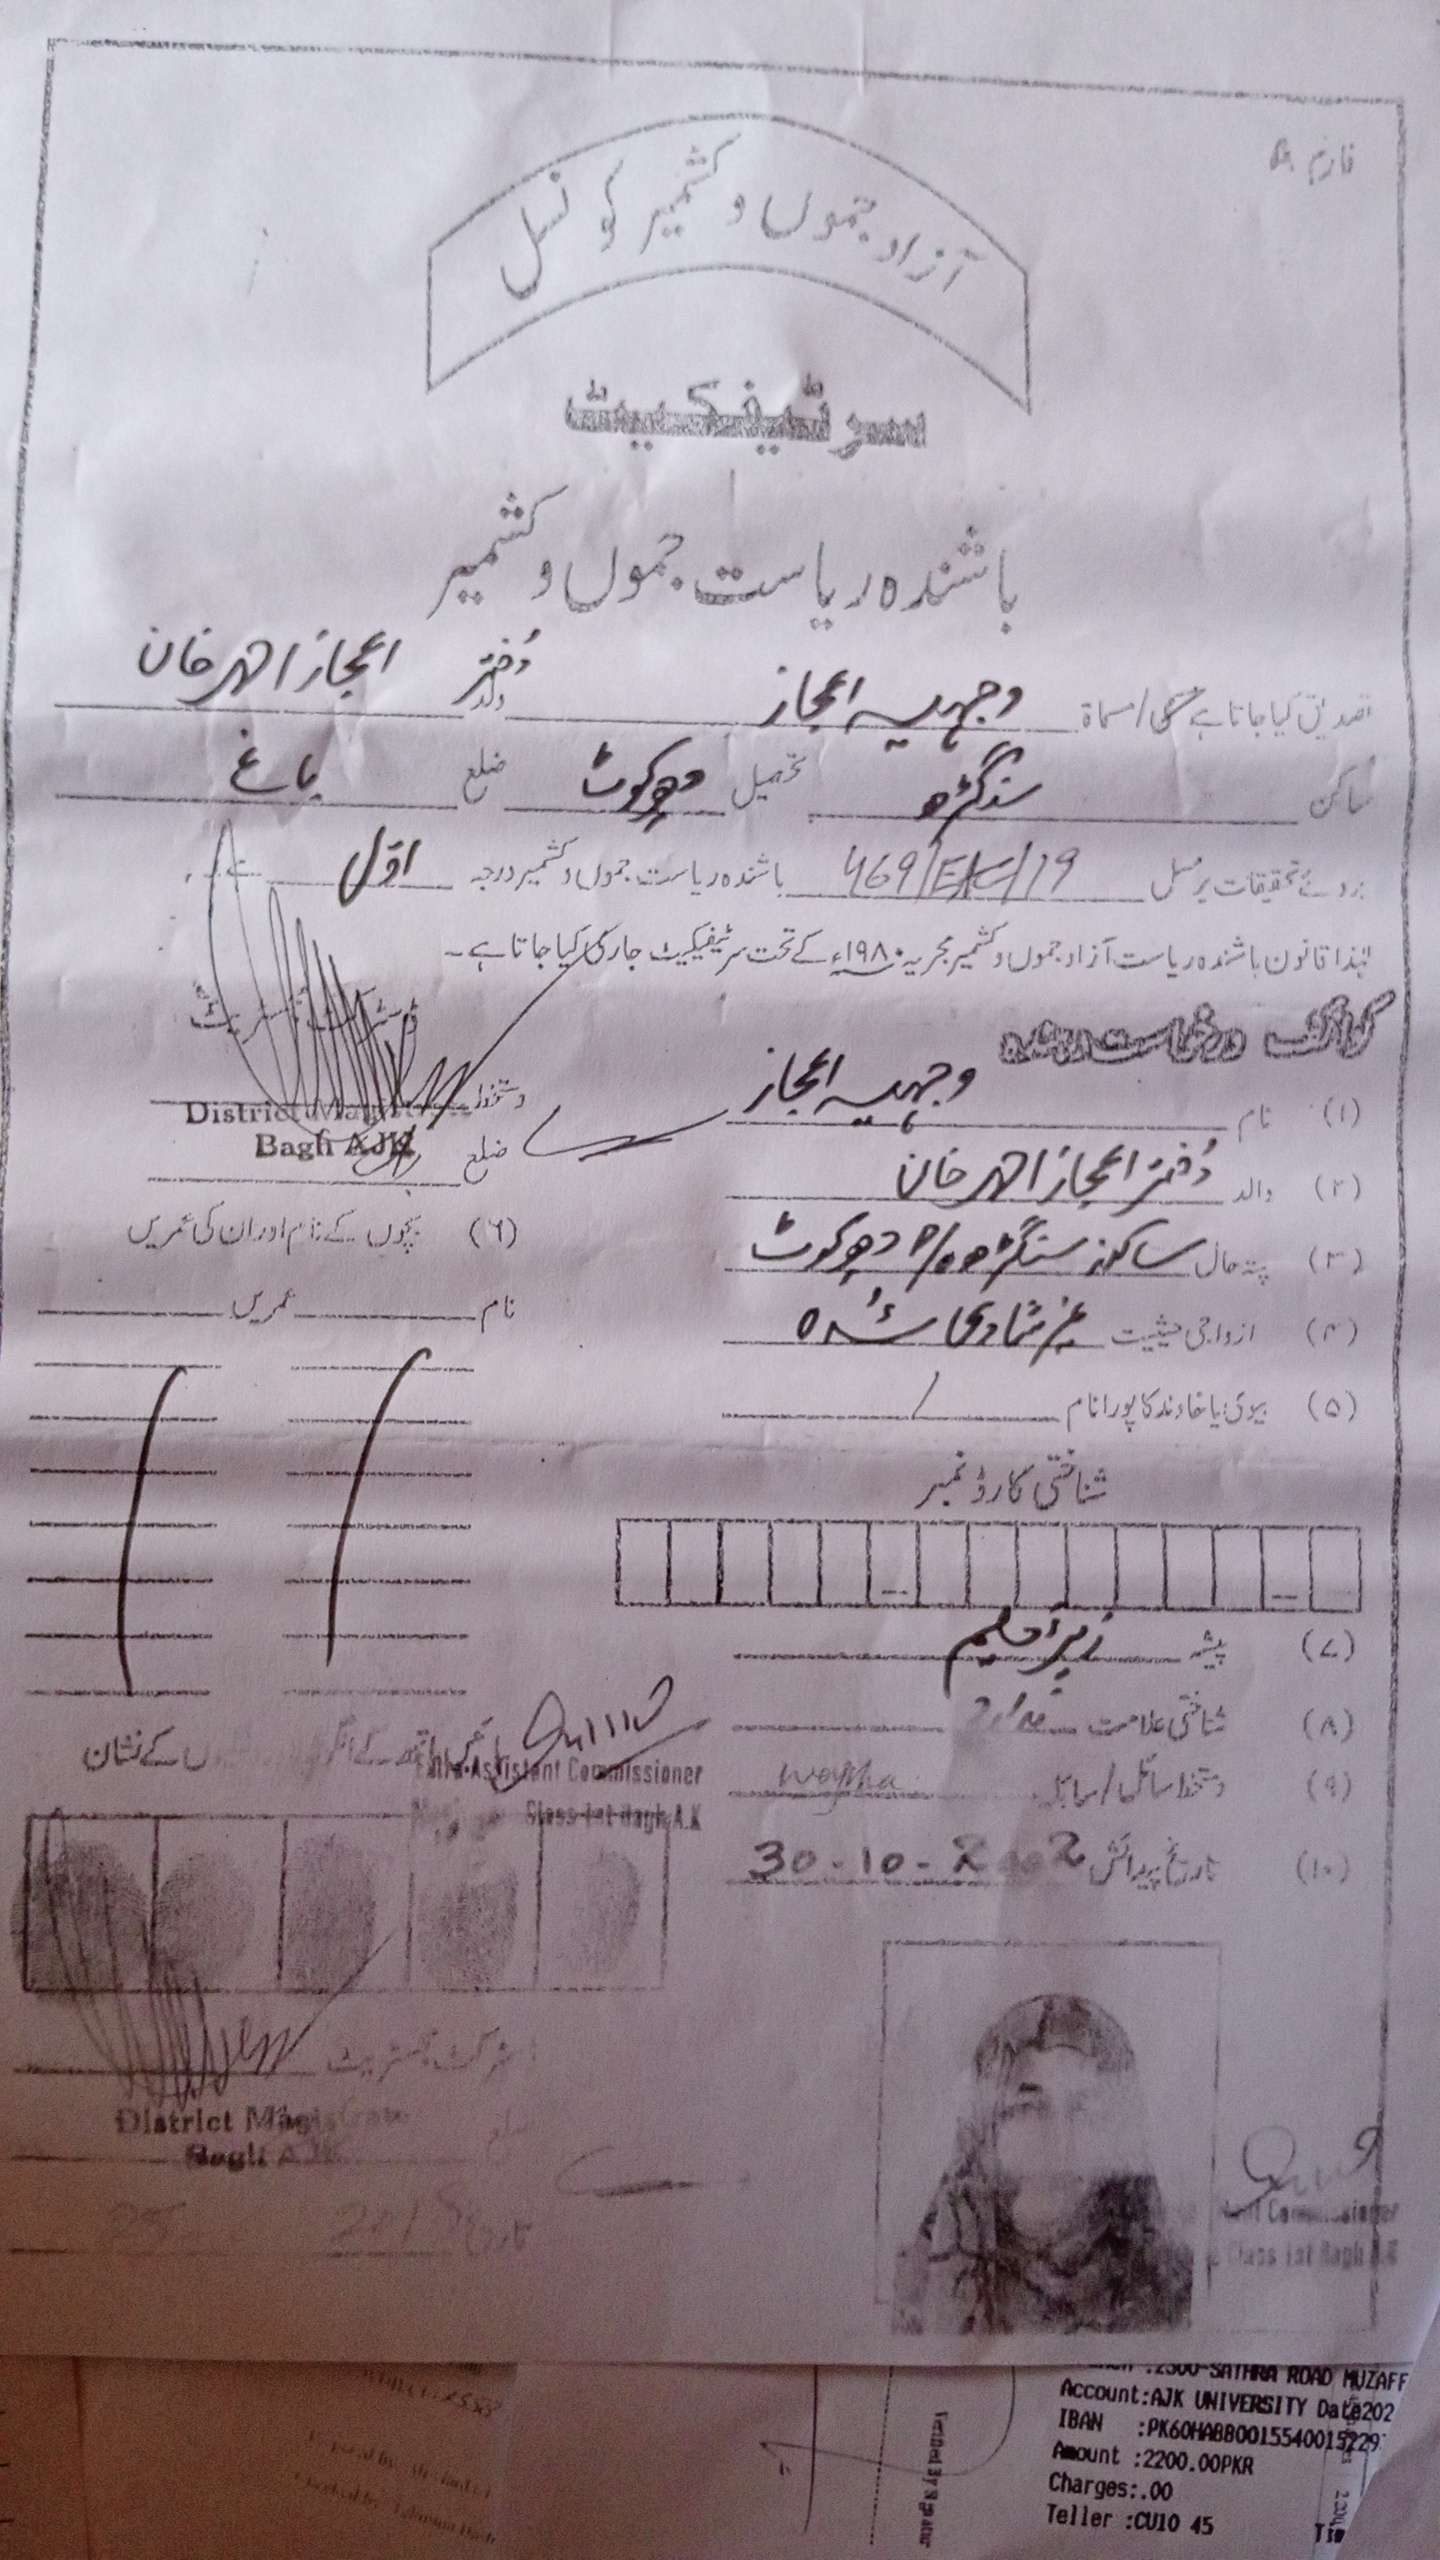 فارم
آزاد جموں و کشمیر کونسل
سرٹیفکیٹ
باشندہ ریاست جموں و کشمیر
تصدیق کیا جاتا ہے مسمی/مسماۃ وجہیہ اعجاز دختر ولد اعجاز احمد خان
ساکن سنگڑھ تحصیل دھیرکوٹ ضلع باغ
بروئے تحقیقات برمسل 469/EAC/19 باشندہ ریاست جموں و کشمیر درجہ اوّل ہے۔
لہٰذا قانون باشندہ ریاست آزاد جموں و کشمیر مجریہ ۱۹۸۰ء کے تحت سرٹیفکیٹ جاری کیا جاتا ہے۔
ڈسٹرکٹ مجسٹریٹ
دستخط
District Magistrate
Bagh AJK
ضلع
کوائف درخواست دہندہ
(۱) نام وجہیہ اعجاز
(۲) والد دختر اعجاز احمد خان
(۳) پتہ حال ساکنہ سنگڑھ دھیرکوٹ
(۴) ازدواجی حیثیت غیر شادی شدہ
(۵) بیوی یا خاوند کا پورا نام /
شناختی کارڈ نمبر
(۶) بچوں کے نام اور ان کی عمریں
نام عمریں
(۷) پیشہ زیر تعلیم
(۸) شناختی علامت
(۹) دستخط سائل/سائلہ
(۱۰) تاریخ پیدائش 30-10-2002
کے نشان
Extra Assistant Commissioner
Class 1st Bagh A.K
ڈسٹرکٹ مجسٹریٹ
District Magistrate
Bagh AJK
ضلع
تاریخ
Commissioner
Class 1st Bagh A.K
:2300-SATHRA ROAD MUZAFF
Account:AJK UNIVERSITY Date202
IBAN :PK60HABB001554001522
Amount :2200.00PKR
Charges:.00
Teller :CU10 45